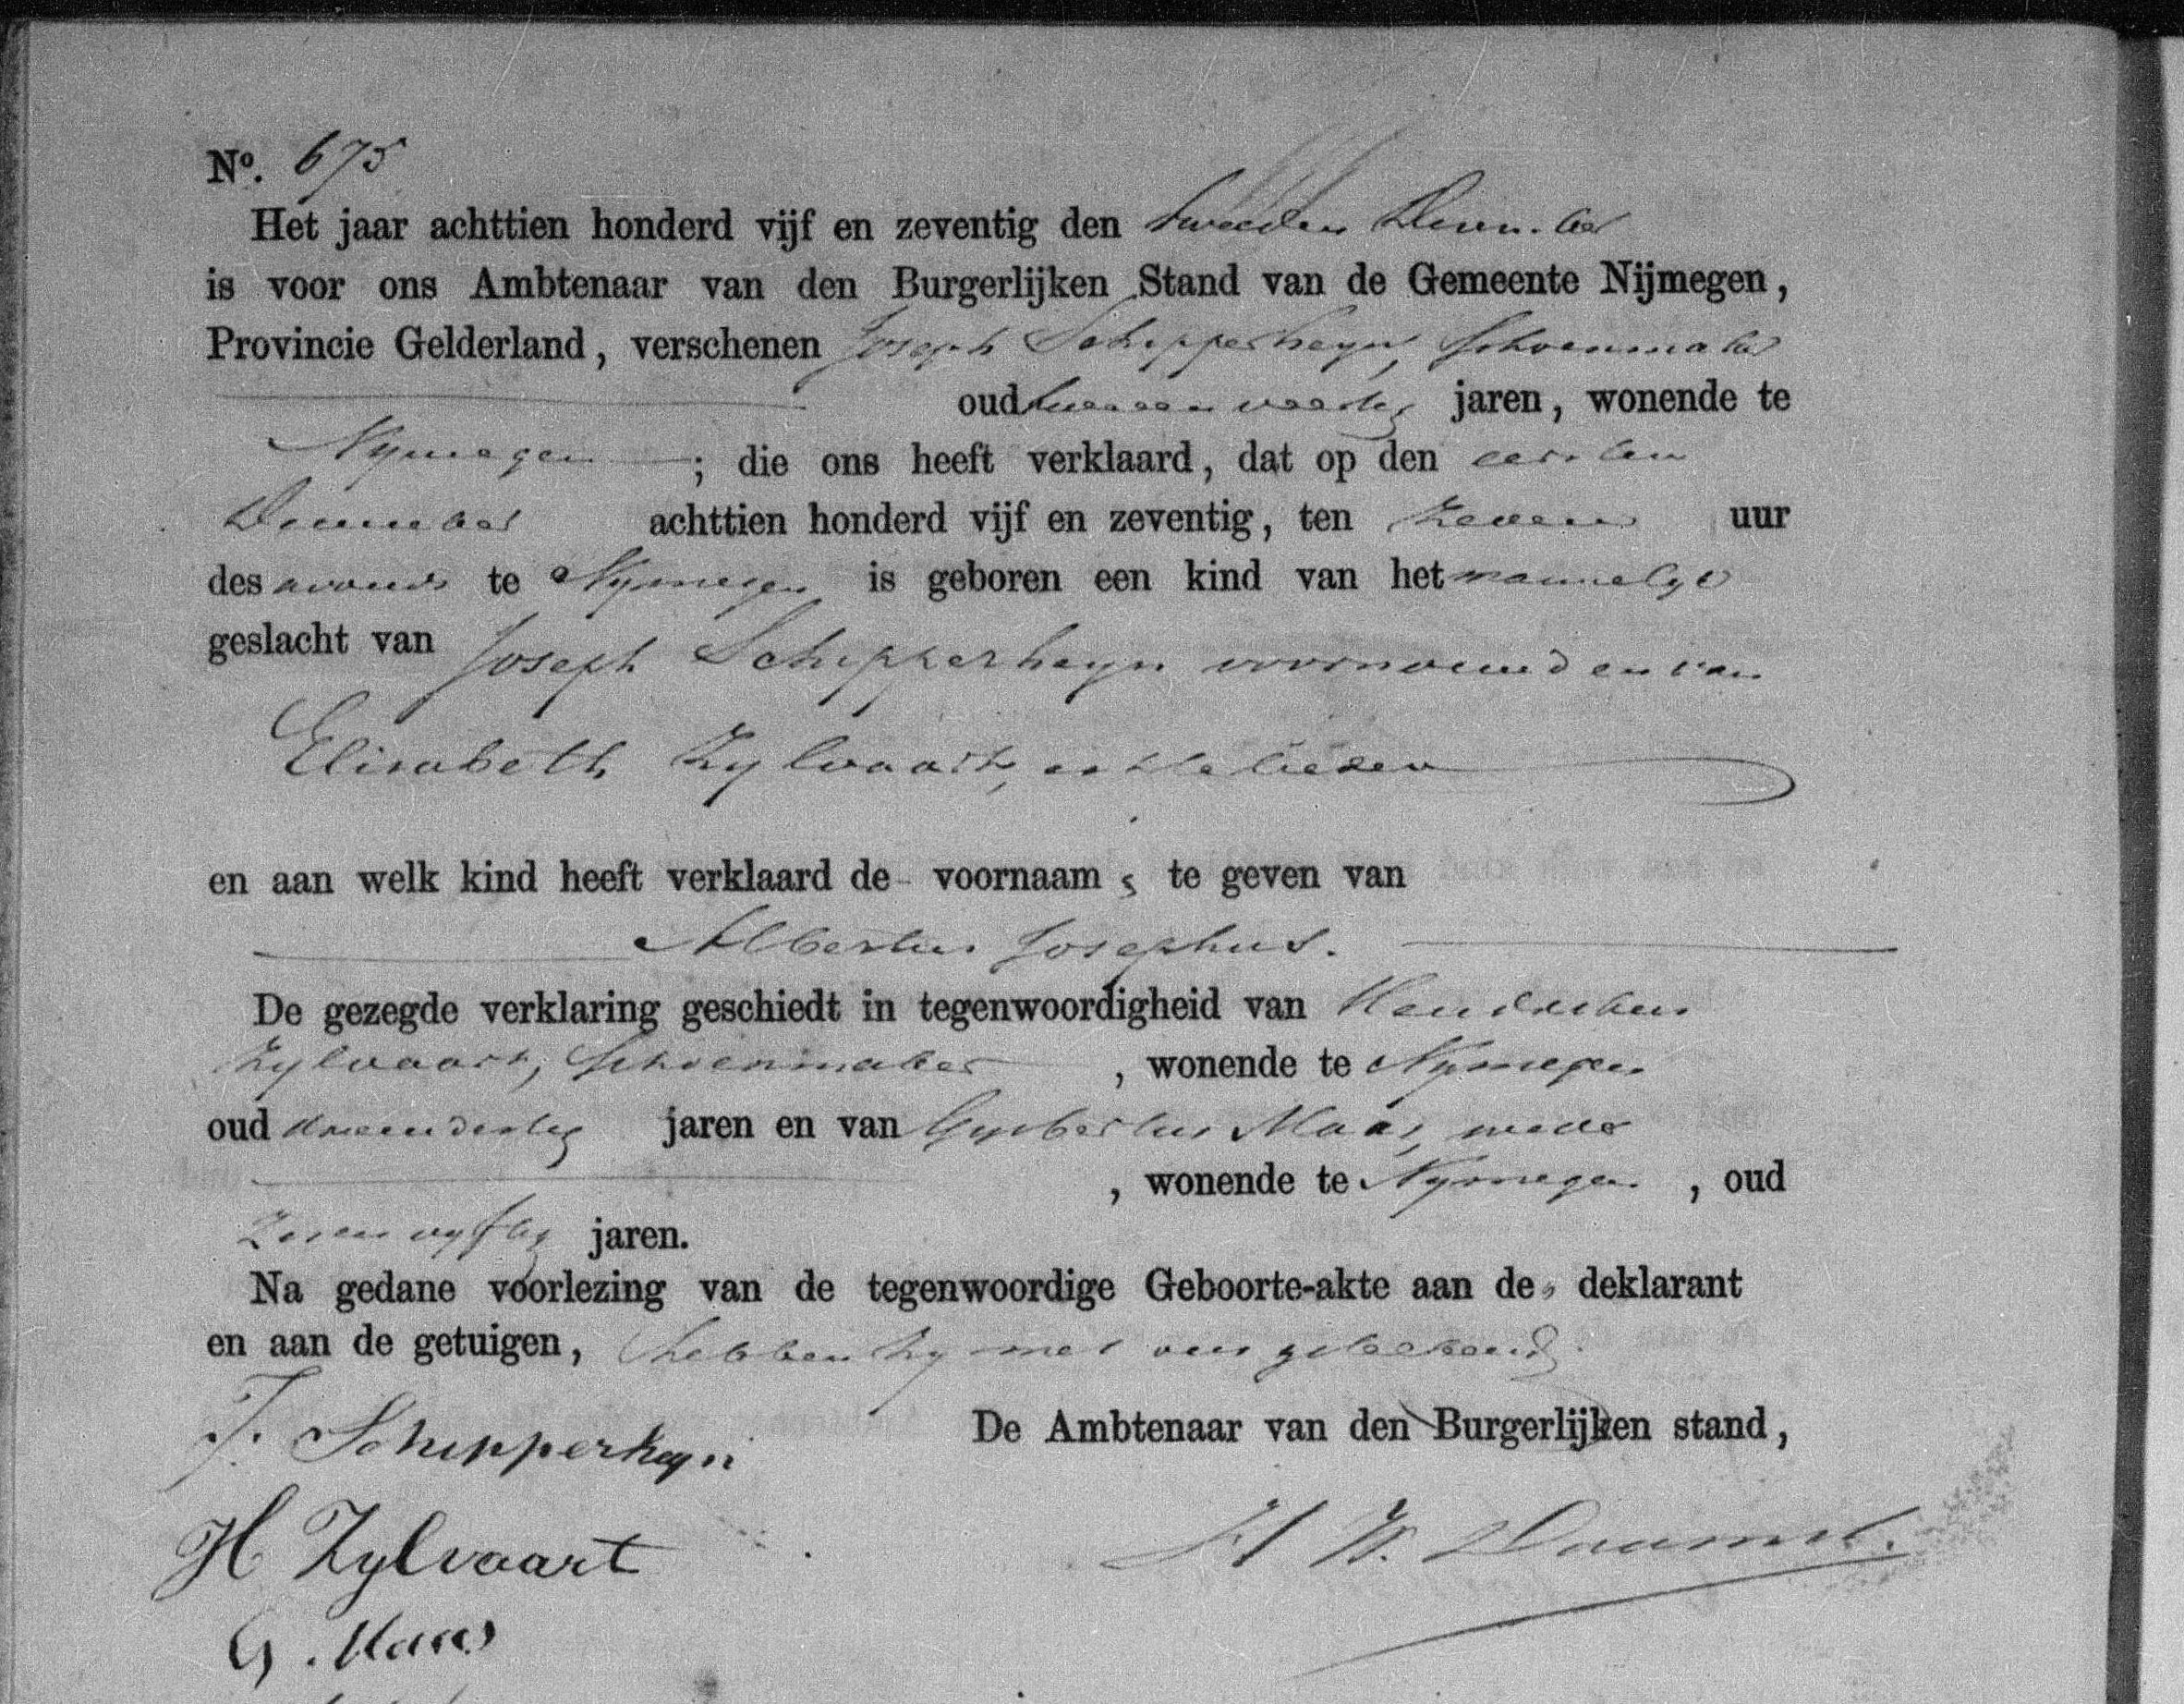 Nº. 675
Het jaar achttien honderd vijf en zeventig den tweeden December
is voor ons Ambtenaar van den Burgerlijken Stand van de Gemeente Nijmegen,
Provincie Gelderland, verschenen Joseph Schipperheyn, Schoenmaker
oud twee en veertig jaren, wonende te
Nymegen ; die ons heeft verklaard, dat op den eersten
December achttien honderd vijf en zeventig, ten zeven uur
des avonds te Nymegen is geboren een kind van het mannelyk
geslacht van Joseph Schipperheyn voornoemd en van
Elisabeth Zylvaart, echtelieden
en aan welk kind heeft verklaard de voornaam s te geven van
Albertus Josephus.
De gezegde verklaring geschiedt in tegenwoordigheid van Hendrikus
Zylvaart, Schoenmaker , wonende te Nymegen
oud drieendertig jaren en van Gysbertus Maas, mede
, wonende te Nymegen , oud
zesenvyftig jaren.
Na gedane voorlezing van de tegenwoordige Geboorte-akte aan de deklarant
en aan de getuigen, hebben zy met ons geteekend.
De Ambtenaar van den Burgerlijken stand,
J. Schipperheyn
H Zylvaart
G. Maas